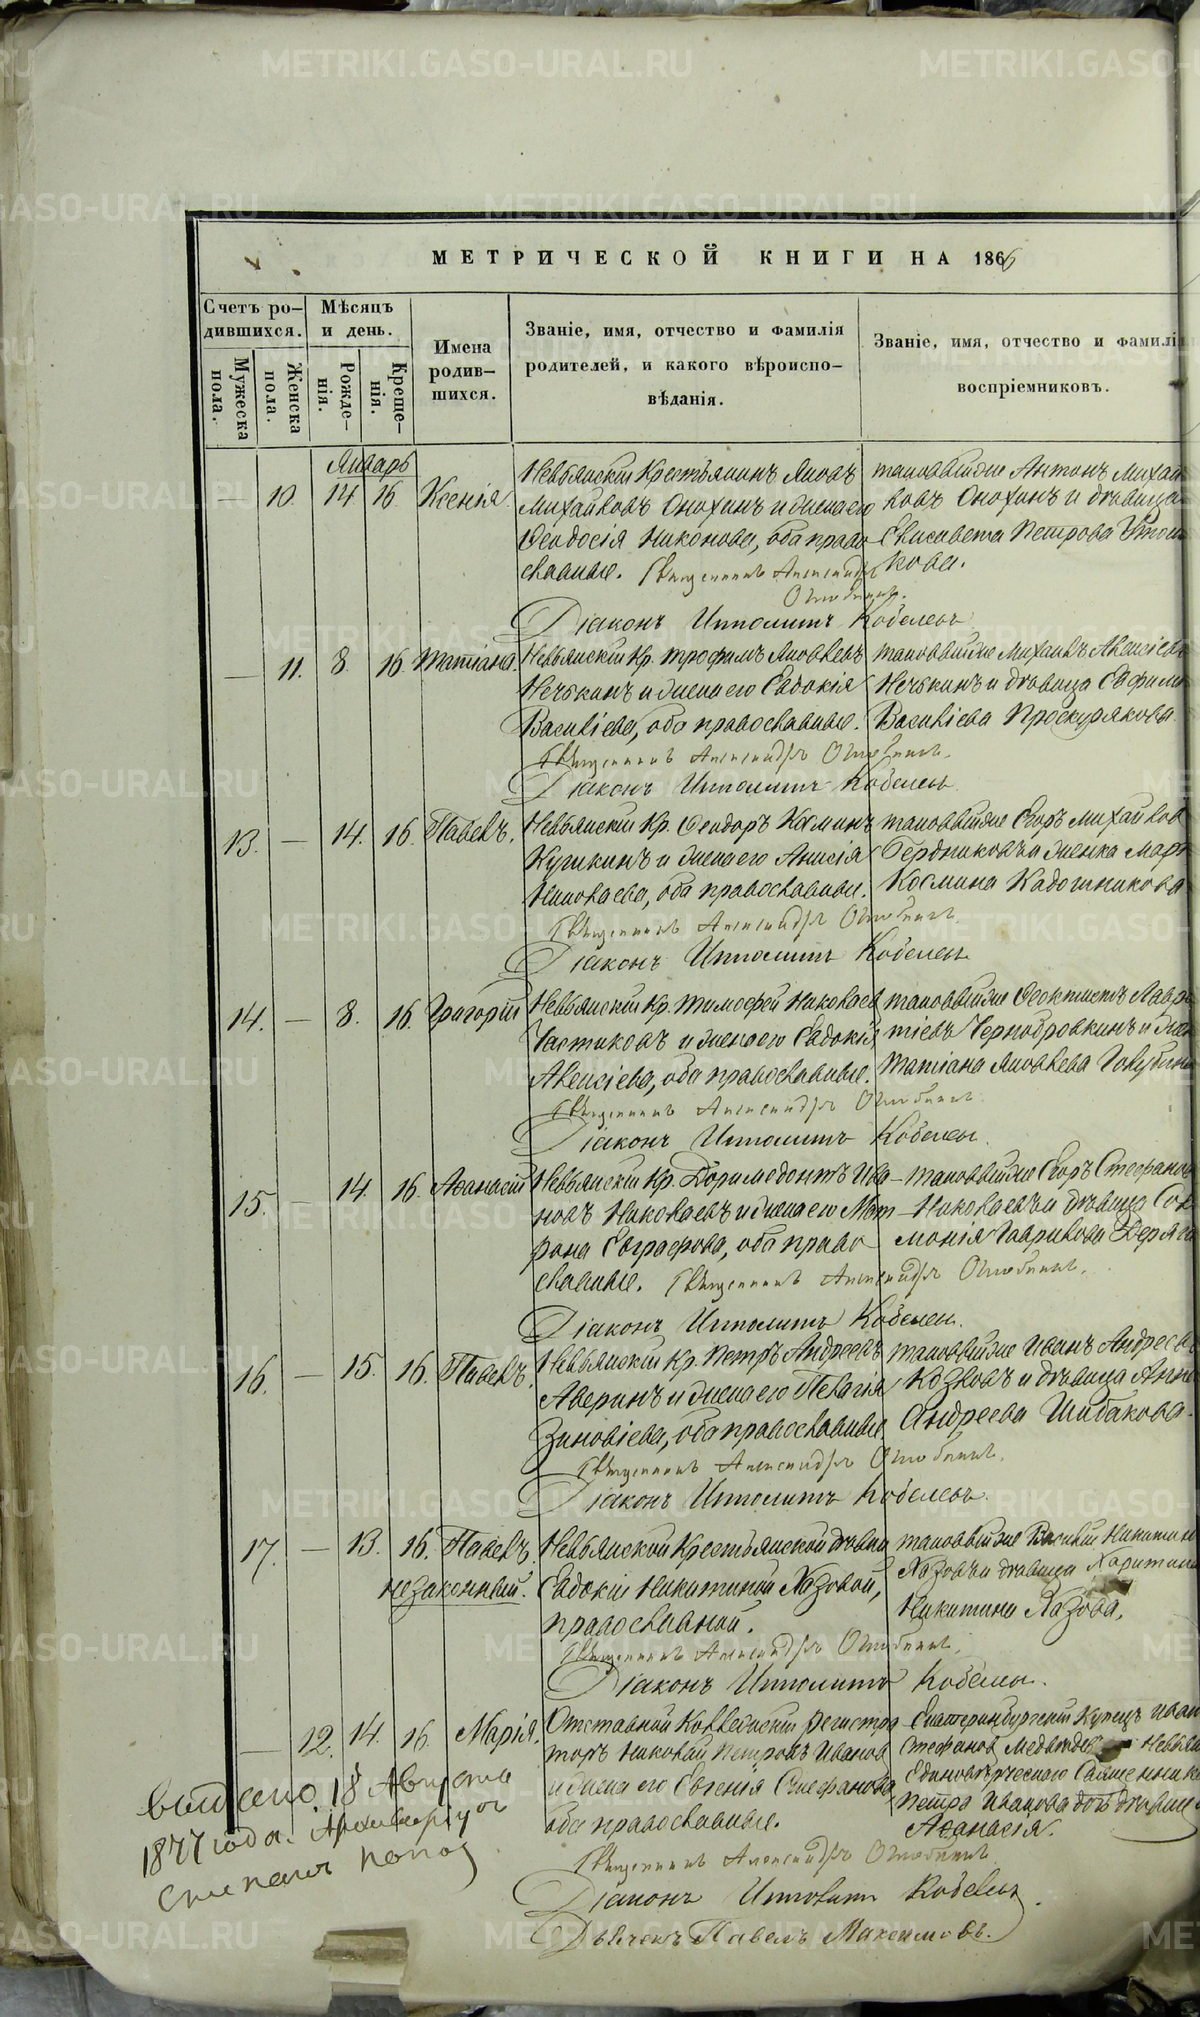 МЕТРИЧЕСКОЙ КНИГИ НА 1866
Счетъ ро-
дившихся.
Мѣсяцъ
и день.
Имена
родив-
шихся.
Званіе, имя, отчество и фамилія
родителей, и какого вѣроиспо-
вѣданія.
Званіе, имя, отчество и фамилі
воспріемниковъ.
Мужеска
пола.
Женска
пола.
Рожде-
нія.
Креще-
нія.
Январь
— 10. 14 16. Ксенія.
Невьянскій Крестьянинъ Яковъ
Михайловъ Онохинъ и жена его
Ѳеодосія Никонова, оба право
славные. Священникъ Александръ
Діаконъ Ипполитъ Кобелевъ
тамошніе Антонъ Михаи
ловъ Онохинъ и дѣвица
Елисавета Петрова
кова.
— 11. 8. 16 Татіана.
Невьянскій Кр. Трофимъ Яковлевъ
Нечькинъ и жена его Евдокія
Василіева, оба православные.
Священникъ Александръ
Діаконъ Ипполитъ Кобелевъ
Михаилъ Алексіевъ
Нечькинъ и дѣвица Евфимі
Василіева Проскурякова
13. — 14. 16. Павелъ.
Невьянскій Кр. Ѳеодоръ Козминъ
Кушкинъ и жена его Анисія
Николаева, оба православные.
Священникъ Александръ
Діаконъ Ипполитъ Кобелевъ
Егоръ Михайлов
Бердниковъ и женка Марѳ
Космина Кадошникова
14. — 8. 16. Григорій
Невьянскій Кр. Тимофей Николаев
Частиковъ и жена его Евдокія
Алексіева, оба православные.
Священникъ Александръ
Діаконъ Ипполитъ Кобелевъ.
Ѳеоктистъ Лавре
тіевъ Чернобровкинъ и
Татіана Яковлева Голубина
15. — 14. 16. Аѳанасій
Невьянскій Кр. Доримедонтъ Ива
новъ Николаевъ и жена его Мат
рона Евграфова, оба право
славные. Священникъ Александръ
Діаконъ Ипполитъ Кобелевъ.
Егоръ Стефанов
Николаевъ и дѣвица Со
монія Гаврилова
16. — 15. 16. Павелъ.
Невьянскій Кр. Петръ Андреевъ
Аверинъ и жена его Пелагія
Зиновіева, оба православные
Священникъ Александръ
Діаконъ Ипполитъ Кобелевъ.
Иванъ Андреевъ
Козловъ и дѣвица Анна
Андреева Шибакова.
17. — 13. 16. Павелъ.
незаконный.
Невьянской Крестьянской дѣвки
Евдокіи Никитиной Лазовой,
православной.
Священникъ Александръ
Діаконъ Ипполитъ Кобелевъ.
Василій Никитин
Лазовъ и дѣвица Харитина
Никитина Лазова.
— 12. 14. 16. Марія.
Отставный Коллежскій Регистра
торъ Николай Петровъ Иванов
и жена его Евгенія Стефанова,
оба православные.
Священникъ Александръ
Діаконъ Ипполитъ Кобелевъ.
Дьячокъ Павелъ Максимовъ.
Екатеринбургскій Купецъ Иван
Стефанов Медвѣдев Невьян
Единовѣрческаго Священника
Петра Иванова дочь дѣвица
Аѳанасія.
Выдано 18 Августа
1877 года.